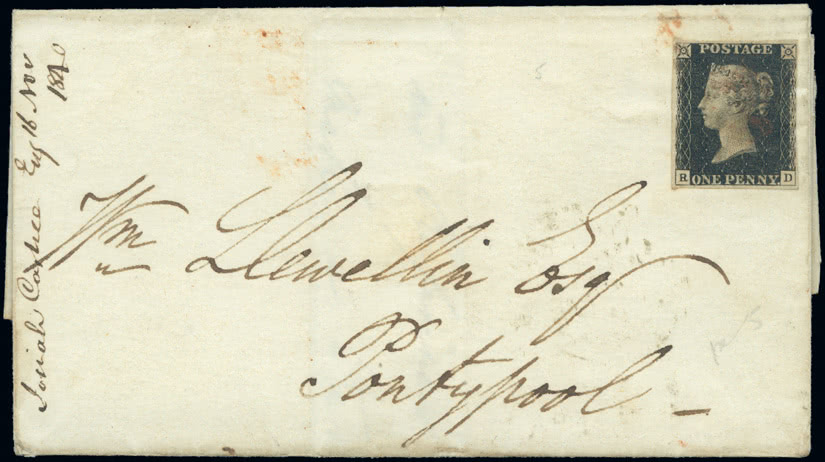 Josiah Esq 16 Nov
1840
POSTAGE
R D
ONE PENNY.
5
Wm Llewellin Esq
Pontypool